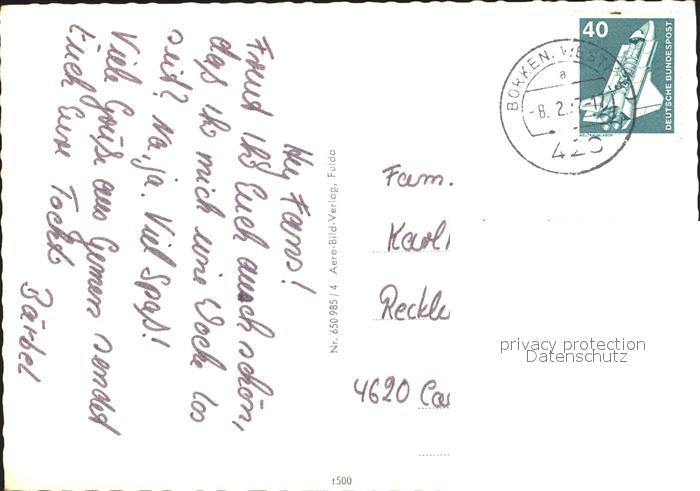 Hey Fans!
Freut Ihr Euch auch schön,
daß Ihr mich eine Woche los
seid? Na, ja. Viel Spaß!
Viele Grüße aus Gemen sendet
Euch Eure Tochter
Bärbel
Nr. 650 985/4 Aero-Bild-Verlag, Fulda
40
DEUTSCHE BUNDESPOST
WELTRAUMLABOR
BORKEN, WESTF
a
-8. 2. 7
Fam.
Karl
Reckl
4620 Ca
privacy protection
Datenschutz
t500